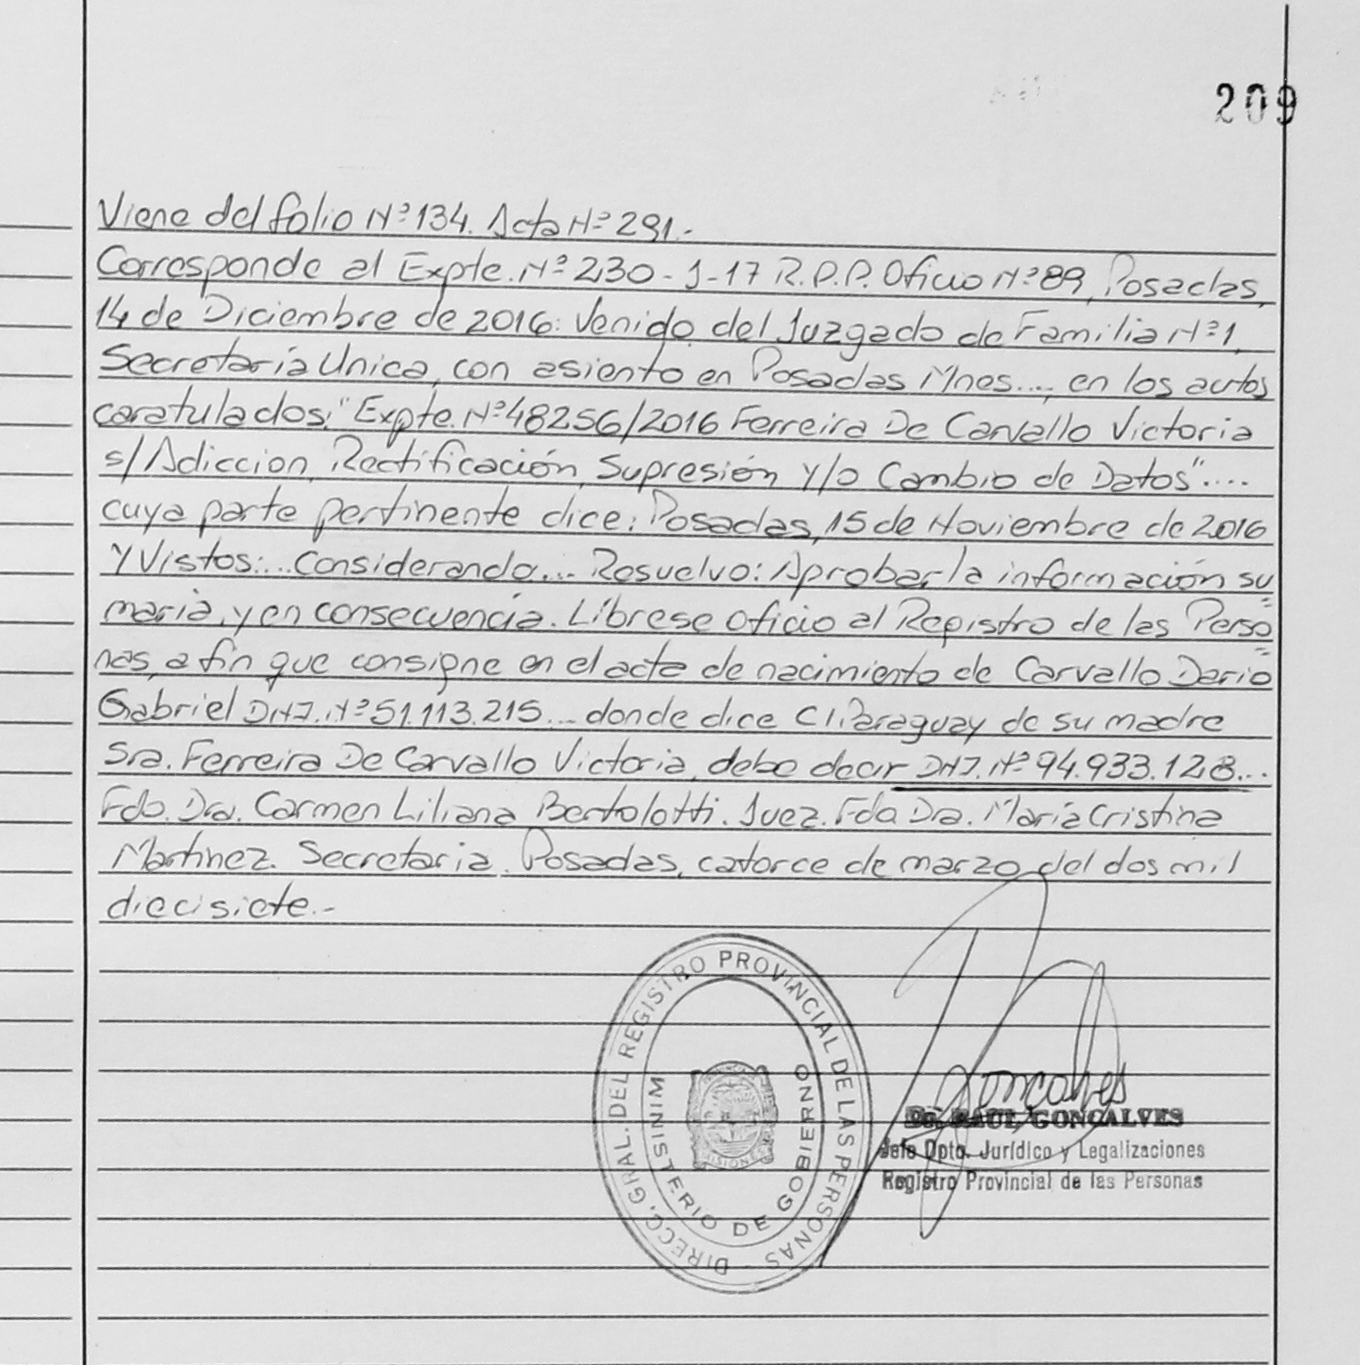 209
Viene del folio Nº 134. Acta Nº 291.-
Corresponde al Expte. Nº 230-J-17 R.P.P. Oficio Nº 89, Posadas,
14 de Diciembre de 2016: Venido del Juzgado de Familia Nº 1,
Secretaría Unica, con asiento en Posadas Mnes...., en los autos
caratulados: "Expte. Nº 48256/2016 Ferreira De Carvallo Victoria
s/Adiccion, Rectificación, Supresión Y/o Cambio de Datos"....
cuya parte pertinente dice: Posadas, 15 de Noviembre de 2016
Y Vistos:... Considerando... Resuelvo: Aprobar la información su=
maria, y en consecuencia. Líbrese Oficio al Registro de las Perso=
nas, a fin que consigne en el acta de nacimiento de Carvallo Dario
Gabriel D.N.I. Nº 51.113.215... donde dice C.I. Paraguay de su madre
Sra. Ferreira De Carvallo Victoria, debe decir D.N.I. Nº 94.933.128...
Fdo. Dra. Carmen Liliana Bertolotti. Juez. Fdo Dra. María Cristina
Martinez. Secretaria. Posadas, catorce de marzo del dos mil
diecisiete.-
DIRECC. GRAL. DEL REGISTRO PROVINCIAL DE LAS PERSONAS -
MINISTERIO DE GOBIERNO
MISIONES
Goncalves
Dr. RAUL GONCALVES
Jefe Dpto. Jurídico y Legalizaciones
Registro Provincial de las Personas